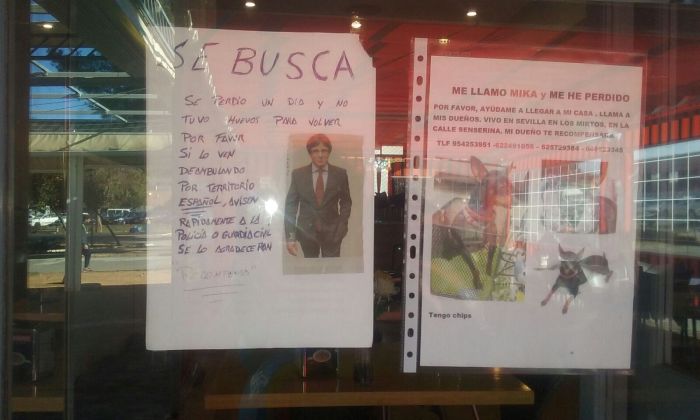 SE BUSCA
SE PERDIO UN DIA Y NO
TUVO HUEVOS PARA VOLVER
POR FAVOR
SI LO VEN
DEAMBULANDO
POR TERRITORIO
ESPAÑOL, AVISEN
RAPIDAMENTE A LA
POLICIA O GUARDIA CIVIL
SE LO AGRADECERAN
RECOMPENSA
ME LLAMO MIKA y ME HE PERDIDO
POR FAVOR, AYÚDAME A LLEGAR A MI CASA . LLAMA A
MIS DUEÑOS. VIVO EN SEVILLA EN LOS MIRTOS, EN LA
CALLE SENSERINA. MI DUEÑO TE RECOMPENSARA
TLF 954253951
Tengo chips